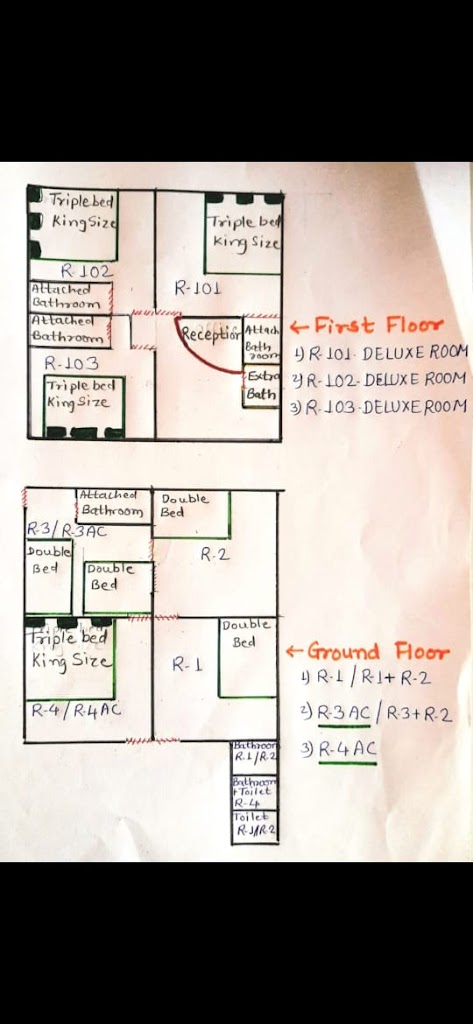 Triple bed
King Size
R-102
Attached
Bathroom
Attached
Bathroom
R-103
Triple bed
King Size
Triple bed
King Size
R-101
Reception
Attach
Bath
room
Extra
Bath
← First Floor
1) R-101- DELUXE ROOM
2) R-102- DELUXE ROOM
3) R-103-DELUXE ROOM
Attached
Bathroom
R-3/R-3AC
Double
Bed
Double
Bed
Double
Bed
R-2
Triple bed
King Size
R-4/R-4AC
R-1
Double
Bed
Bathroom
R-1/R-2
Bathroom
+Toilet
R-4
Toilet
R-1/R-2
← Ground Floor
1) R-1/R-1+R-2
2) R-3 AC/R-3+R-2
3) R-4 AC